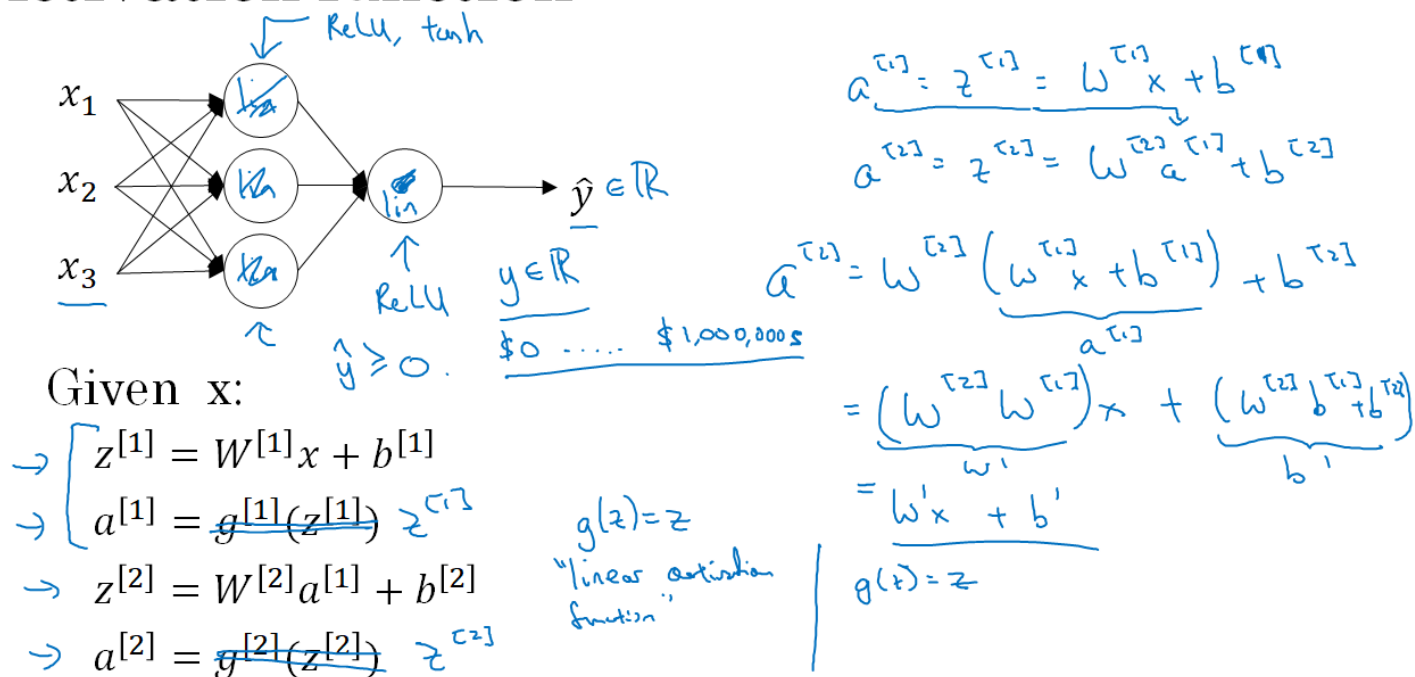 ReLU, tanh
x₁
x₂
x₃
lin
ŷ ∈ ℝ
ReLU
y ∈ ℝ
ŷ ≥ 0.
$0 ..... $1,000,000s
Given x:
→ z^[1] = W^[1]x + b^[1]
→ a^[1] = g^[1](z^[1]) z^[1]
→ z^[2] = W^[2]a^[1] + b^[2]
→ a^[2] = g^[2](z^[2]) z^[2]
g(z) = z
"linear activation
function"
a^[1] = z^[1] = W^[1] x + b^[1]
a^[2] = z^[2] = W^[2] a^[1] + b^[2]
a^[2] = W^[2] (W^[1] x + b^[1]) + b^[2]
a^[1]
= (W^[2] W^[1]) x + (W^[2] b^[1] + b^[2])
W' b'
= W'x + b'
g(z) = z